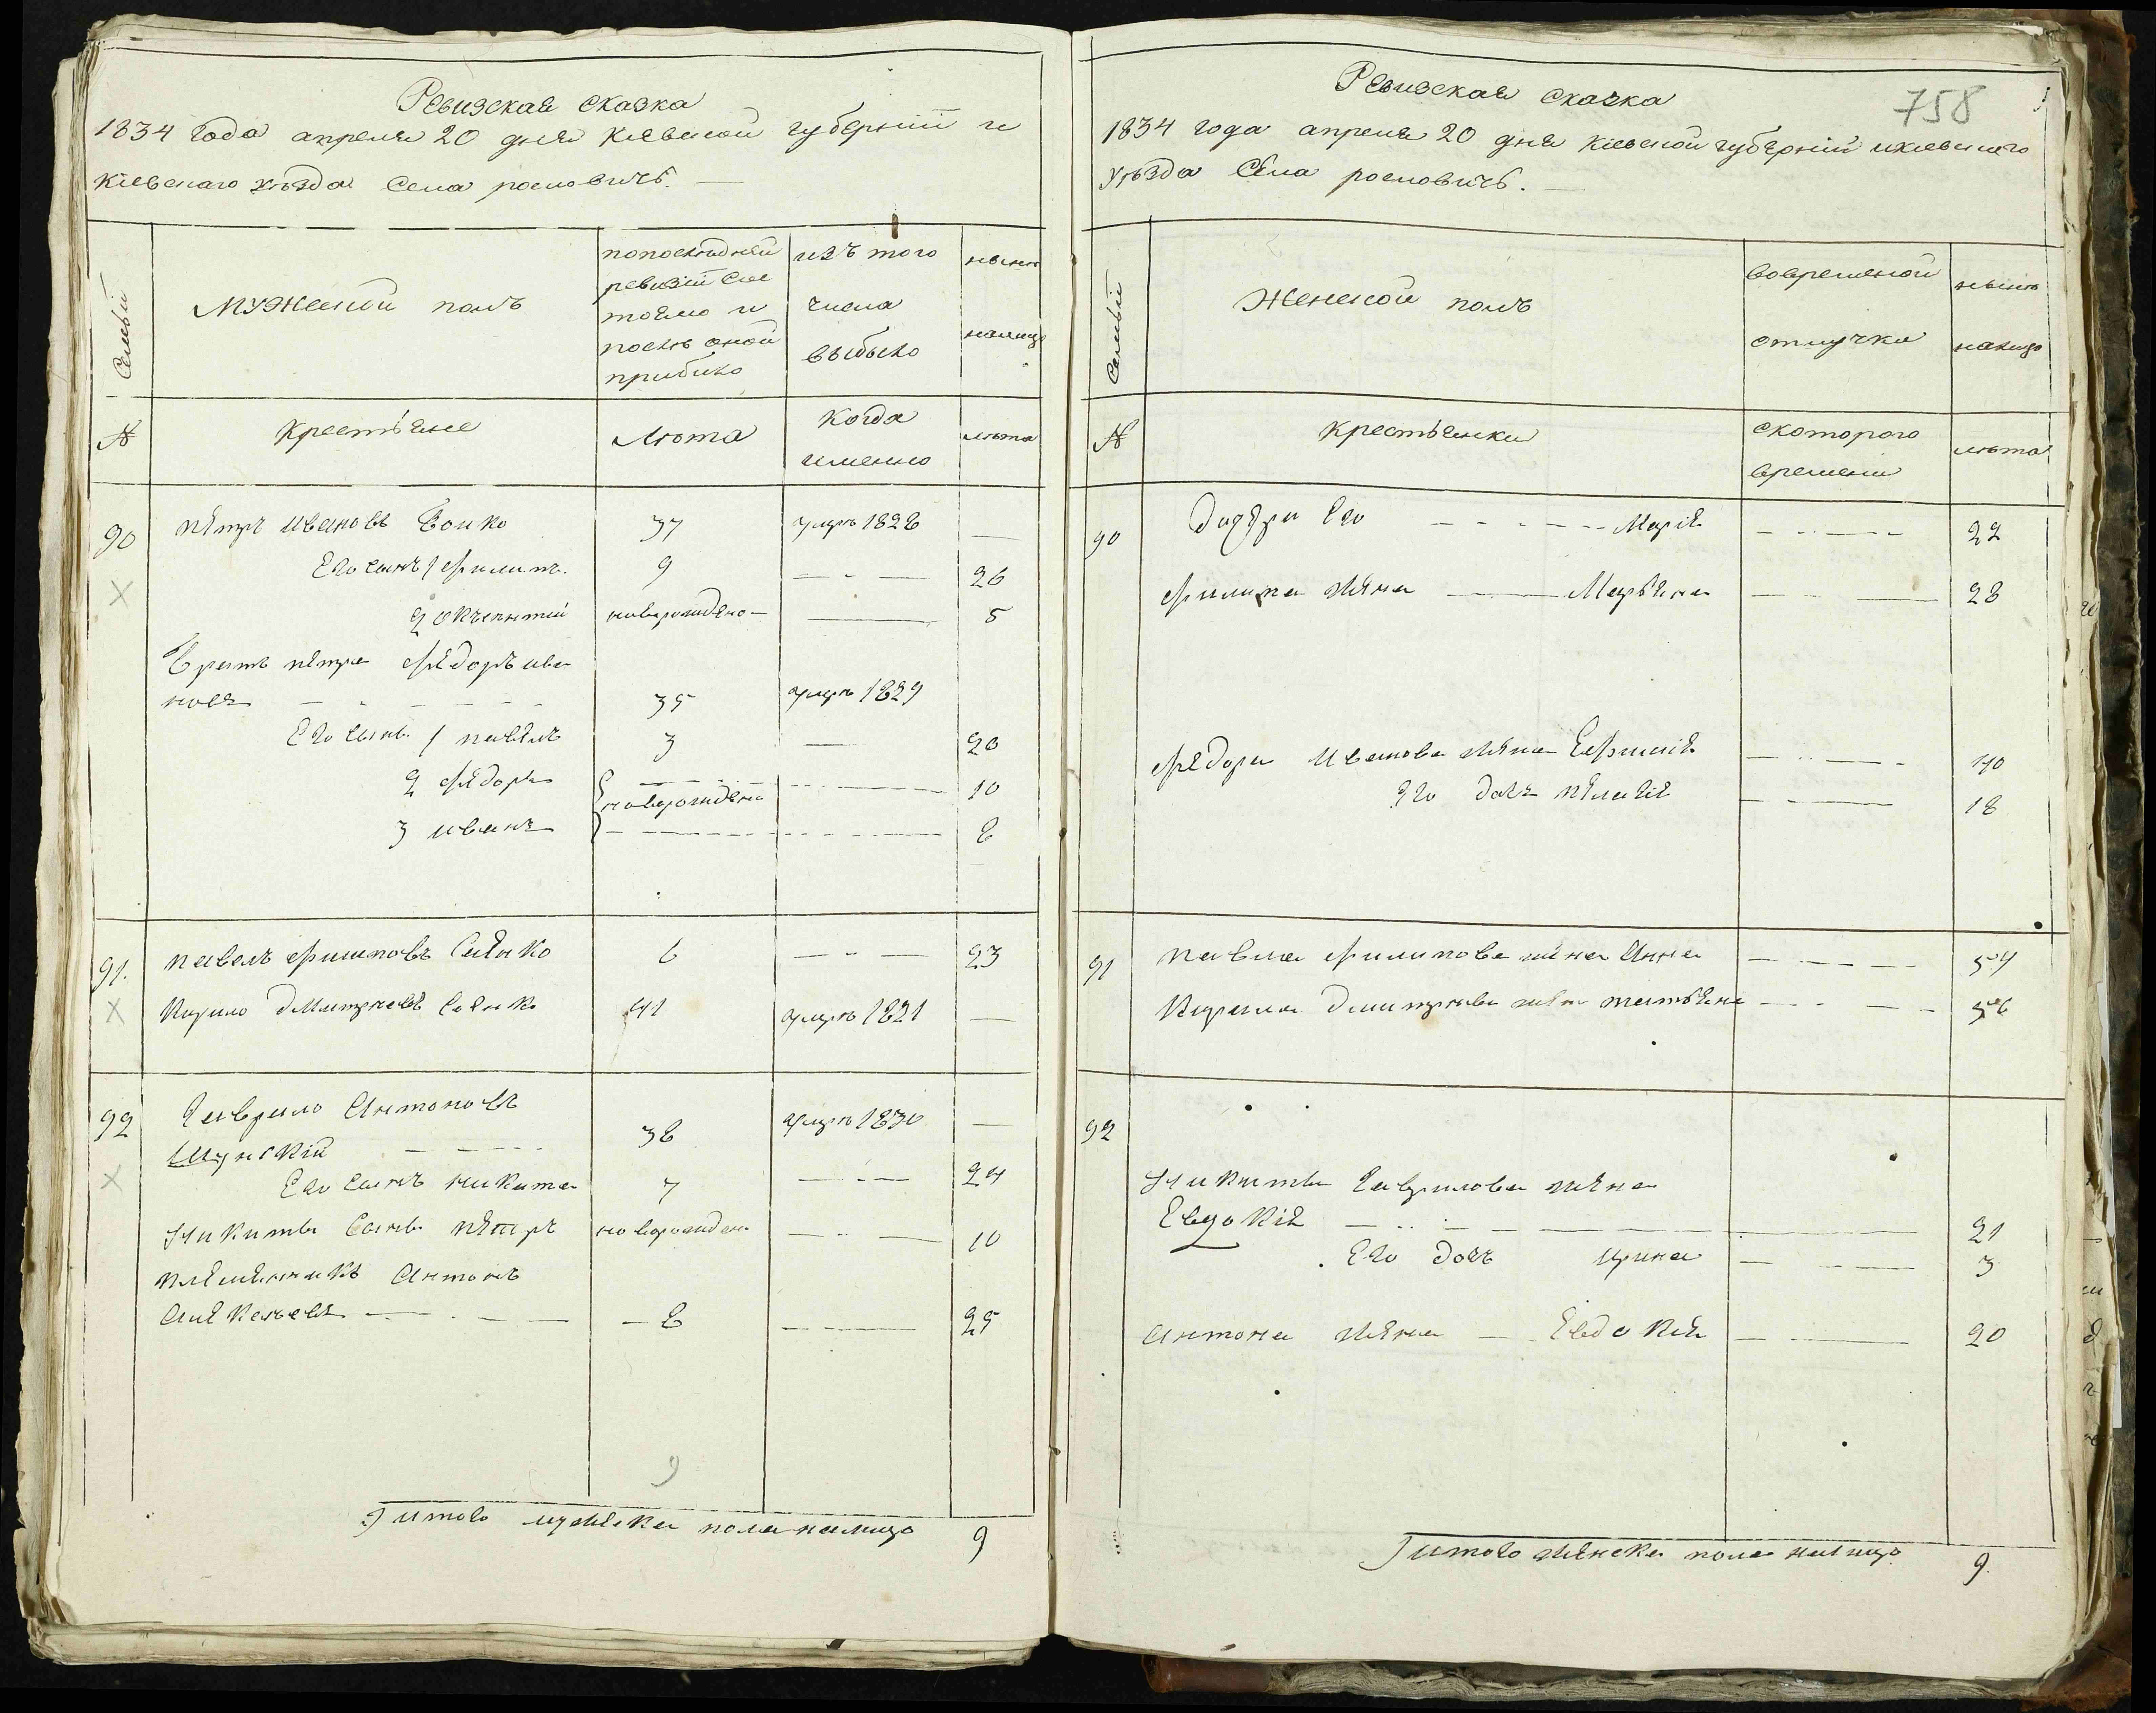 Ревизская сказка
1834 года апреля 20 дня Киевской губернїи и
Кіевскаго уѣзда Села рословичъ.
Семьїи
мужеской полъ
попоследней
ревизїи сос
тояло и
послѣ оной
прибыло
изъ того
числа
выбыло
нынѣ
налицо
№
Крестьяне
Лѣта
Когда
именно
лѣта
90
пѣтръ Ивановъ Бойко
37
умръ 1828
—
Его сынъ 1 филипъ
9
26
2
новорожденъ
5
Братъ пѣтра фѣдоръ ива
новъ
35
умръ 1829
Его сынъ 1 павелъ
3
20
2 фѣдоръ
новорождены
10
3 иванъ
8
91.
павелъ филиповъ
6
23
Кирило дмитріевъ
41
умръ 1821
—
92
Гаврило Антоновъ
38
умръ 1830
—
Его сынъ никита
7
24
Никиты сынъ пѣтръ
новорожден
10
плѣмѣнникъ Антонъ
8
25
9
Итого мужска пола налицо 9
Ревизская сказка
758
1834 года апреля 20 дня Кіевской губернїи икіевскаго
уѣзда Села рословичъ.
Семьїи
Женской полъ
вовременой
отлучки
нынѣ
налицо
№
Крестьянки
скоторого
времени
лѣта
90
Дщери Его Марія
22
филипа жѣна Марьяна
28
фѣдора Иванова жѣна Евфимія
40
Его дочъ пѣлагія
18
91
павла филипова жѣна Анна
54
Кирила дмитріева жѣна татьяна
56
92
Никиты Гаврилова жѣна
Евдокія
21
Его дочъ ирина
3
Антона жѣна — Евдокія
20
Итого жѣнска пола налицо 9.